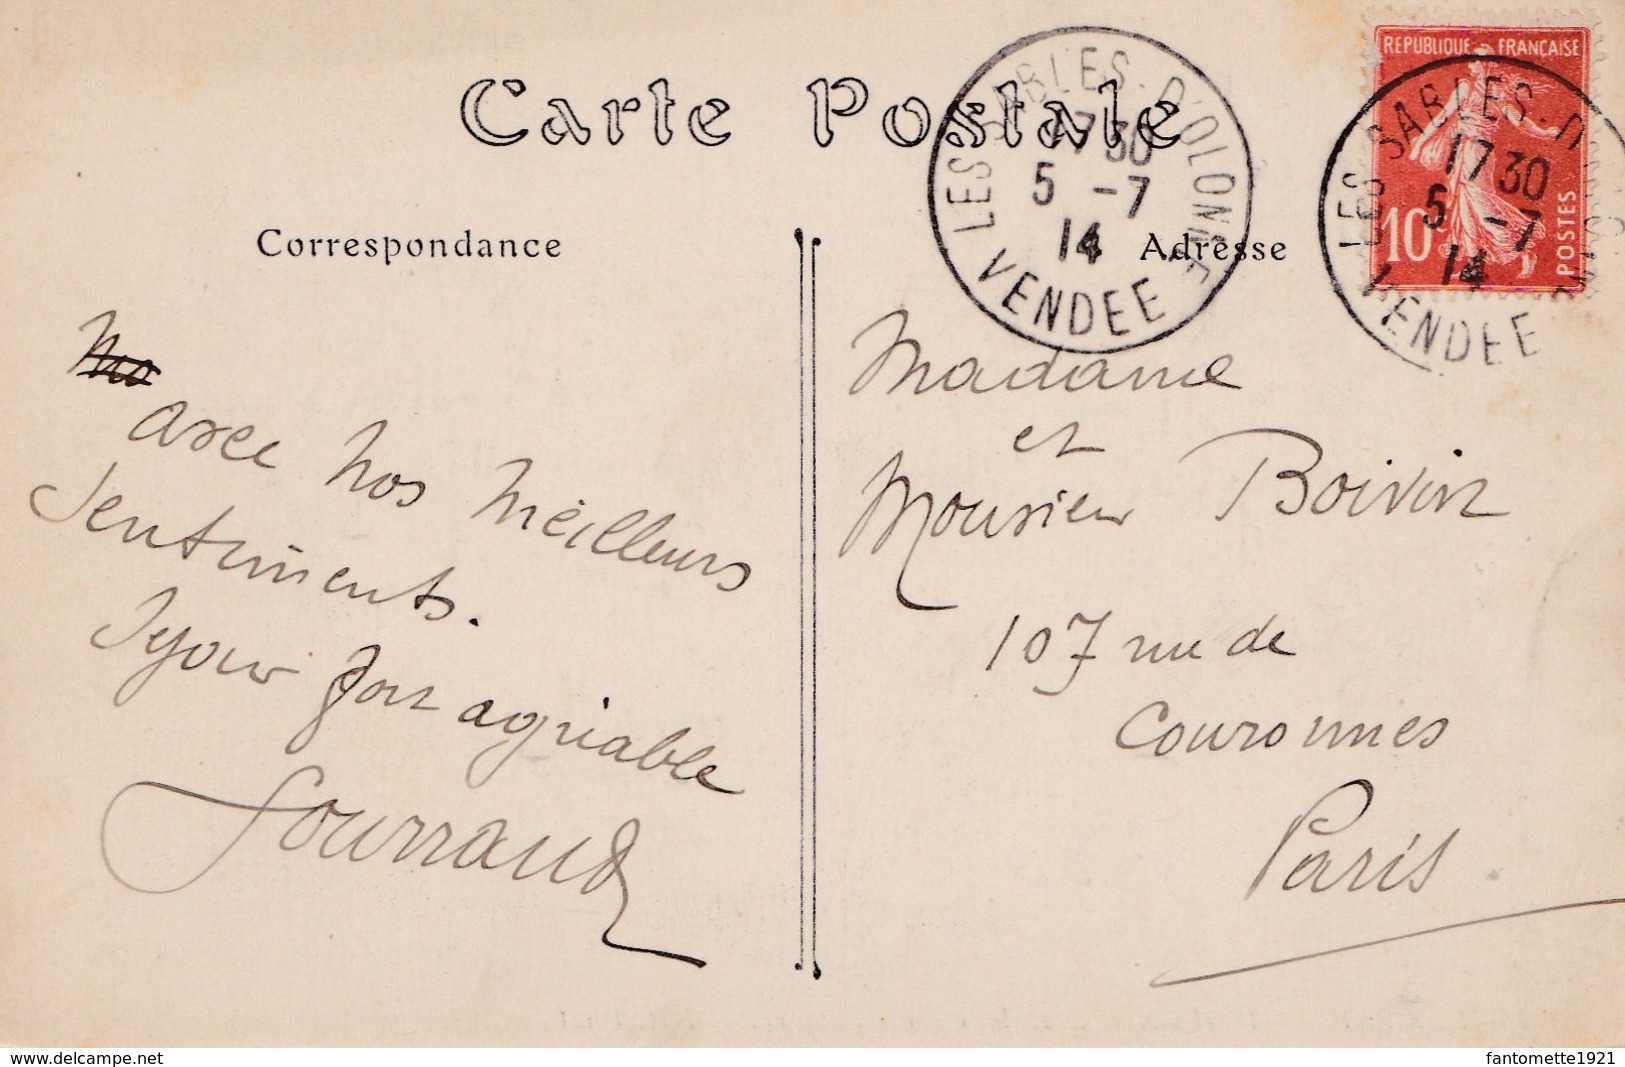 Carte Postale
Correspondance
avec nos meilleurs
sentiments.
Sejour fort agréable
Fourraud
Adresse
Madame
et
Monsieur Boivin
107 rue de
Couronnes
Paris
REPUBLIQUE FRANÇAISE
10
POSTES
LES SABLES-D'OLONNE
17 30
5 -7
14
VENDEE
LES SABLES-D'
17 30
5 -7
14
VENDEE
www.delcampe.net
fantomette1921